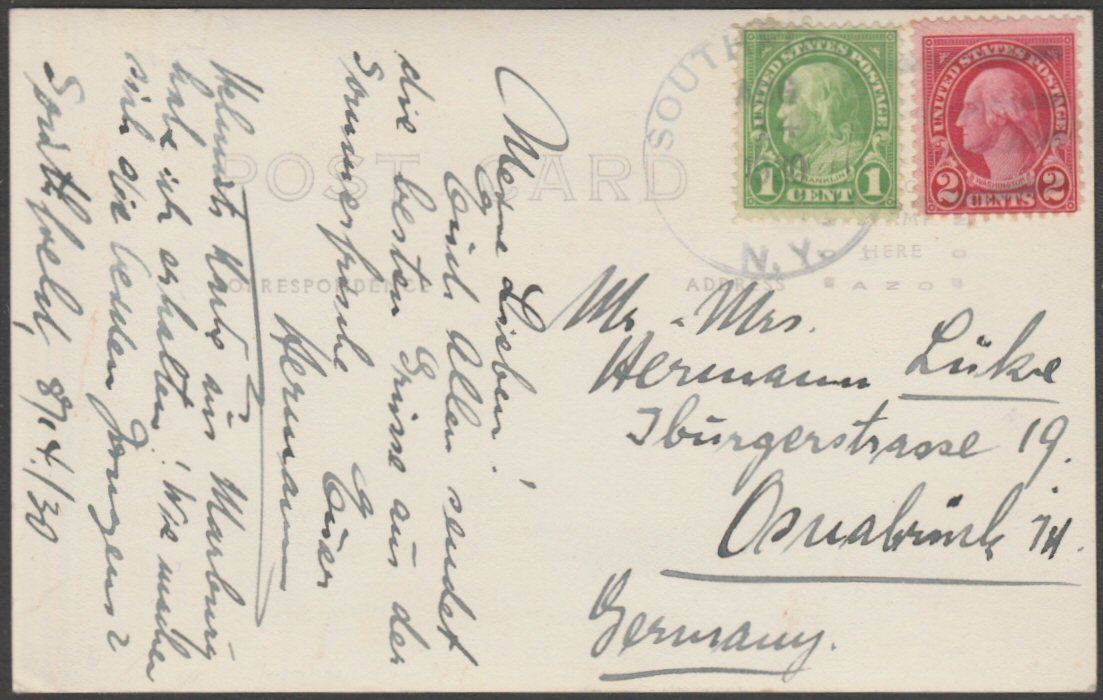 POST CARD
CORRESPONDENCE
ADDRESS
STAMP
HERE
AZO
SOUTH
4
30
N.Y.
UNITED STATES POSTAGE
FRANKLIN
1 CENT 1
UNITED STATES POSTAGE
WASHINGTON
2 CENTS 2
Meine Lieben!
Euch Allen sendet
die besten Grüsse aus der
Sommerfrische
Euer
Hermann
Helmuts Karte aus Marburg
habe ich erhalten! Wie machen
sich die beiden Jungens?
Southfield, 8/4./30
Mr. - Mrs.
Hermann Lüke
Iburgerstrasse 19.
Osnabrück i/H.
Germany.